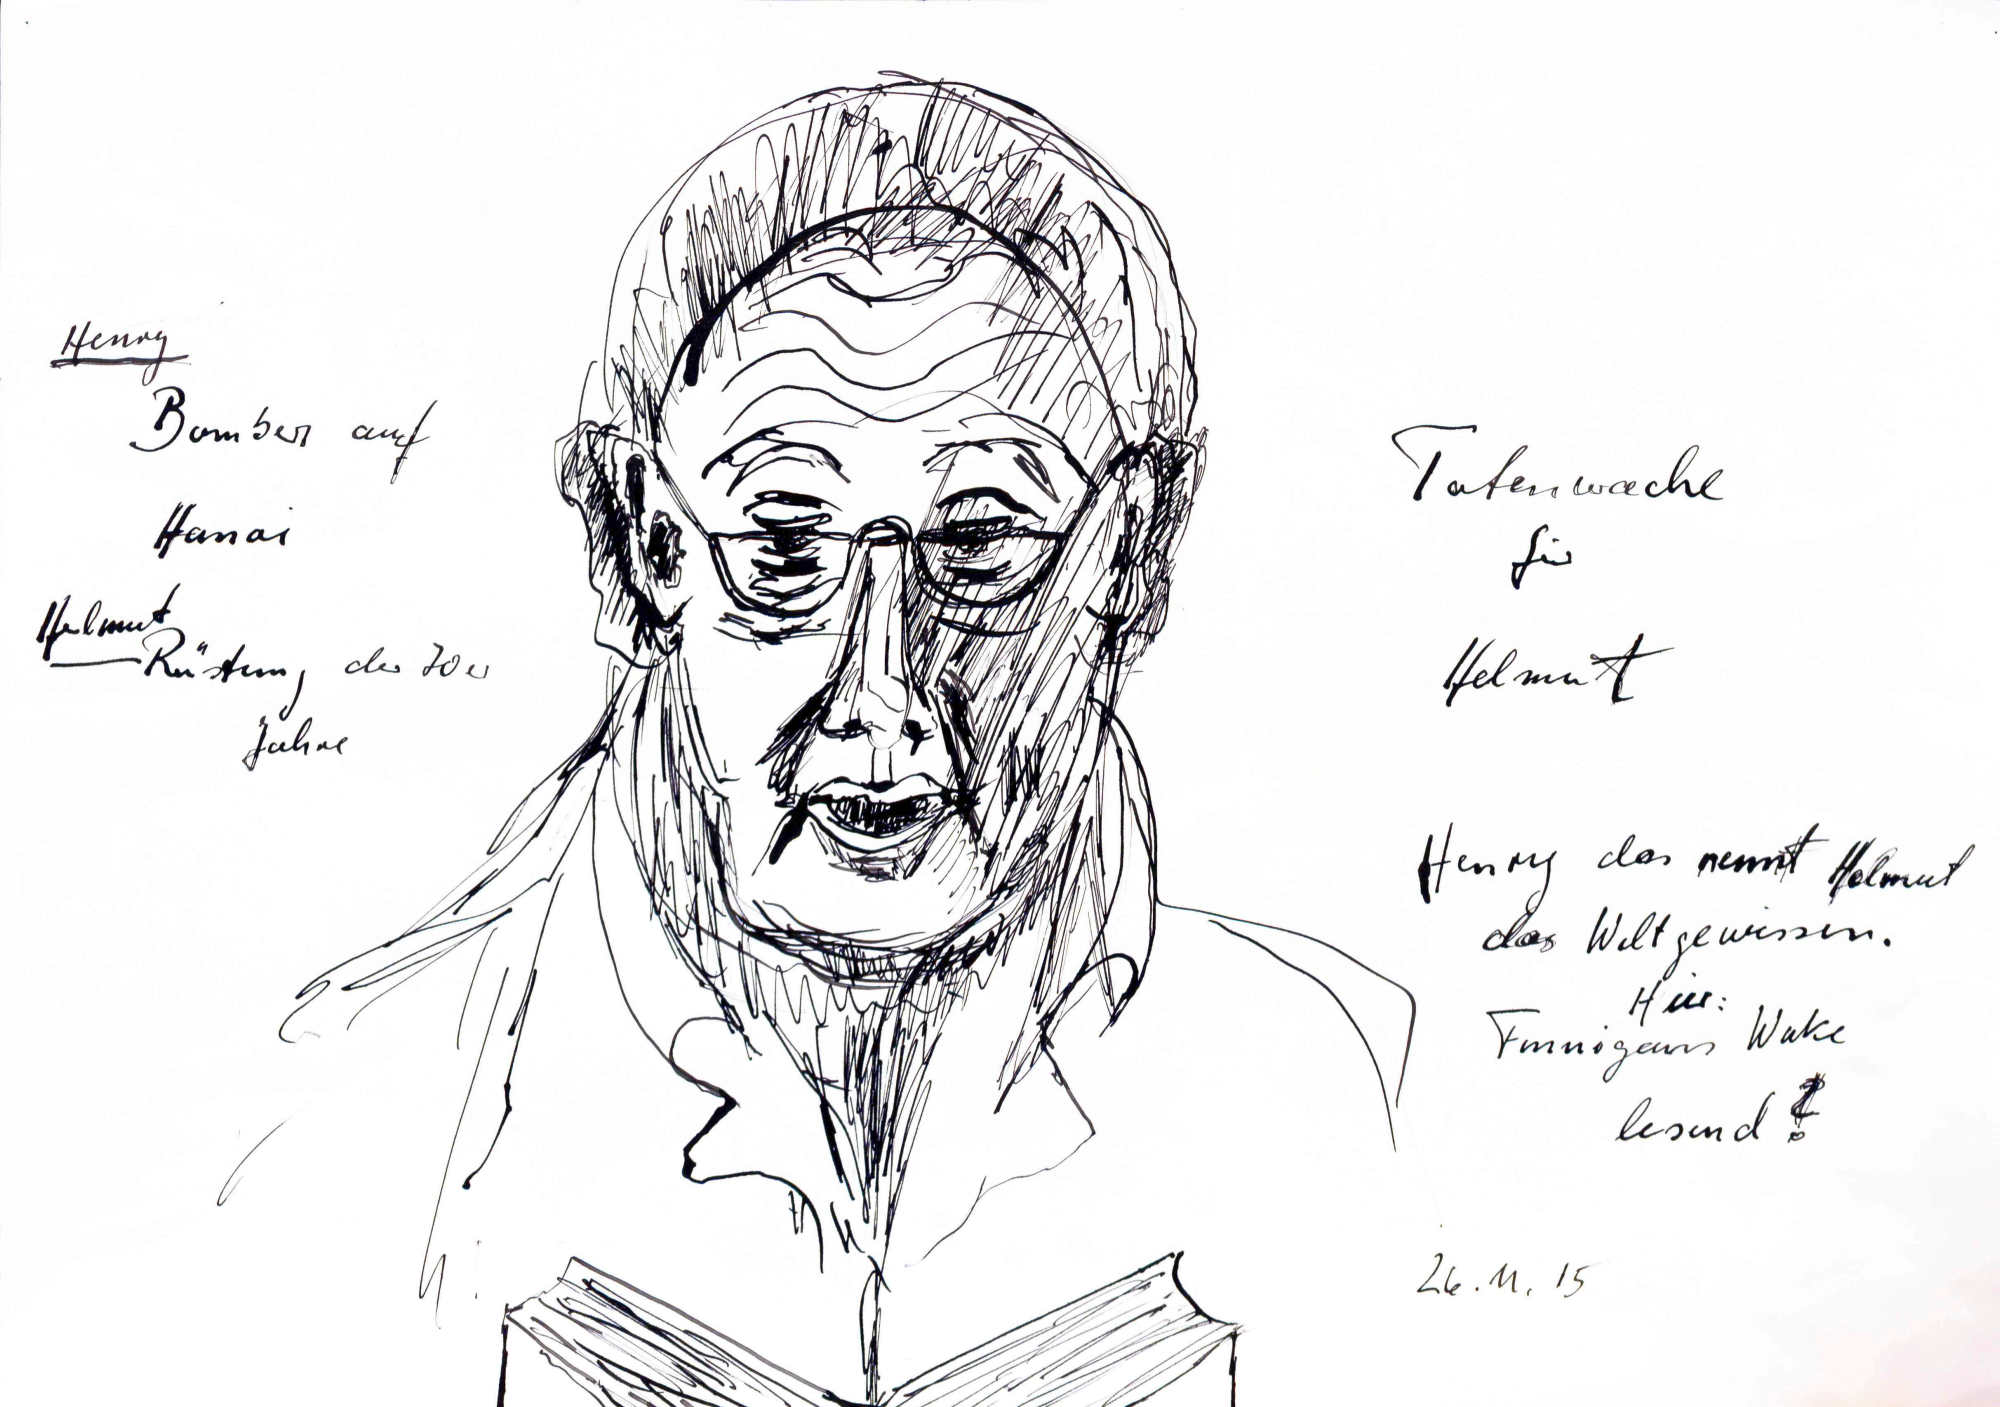 Henry
Bomber auf
Hanoi
Helmut
Rüstung der 70er
Jahre
Totenwache
für
Helmut
Henry das nennt Helmut
das Weltgewissen.
Hier:
Finnigans Wake
lesend?
26.11.15